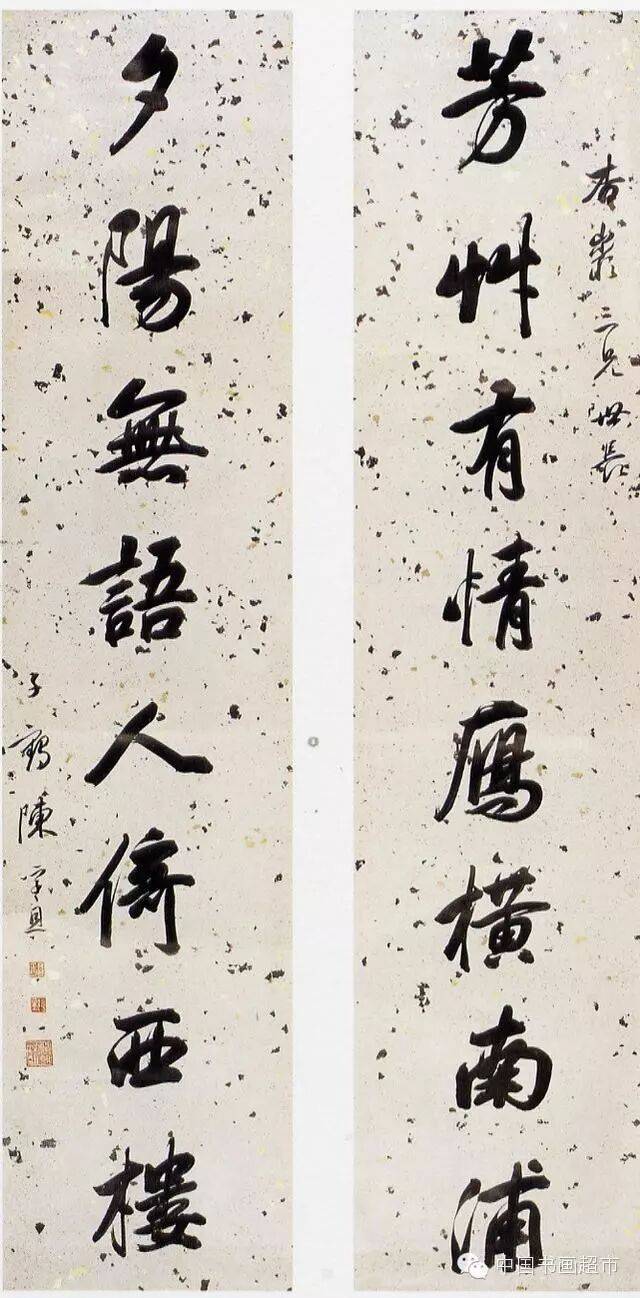 杏 三兄世長
芳艸有情鴈橫南浦
夕陽無語人倚西樓
子鶴陳孚恩
中国书画超市